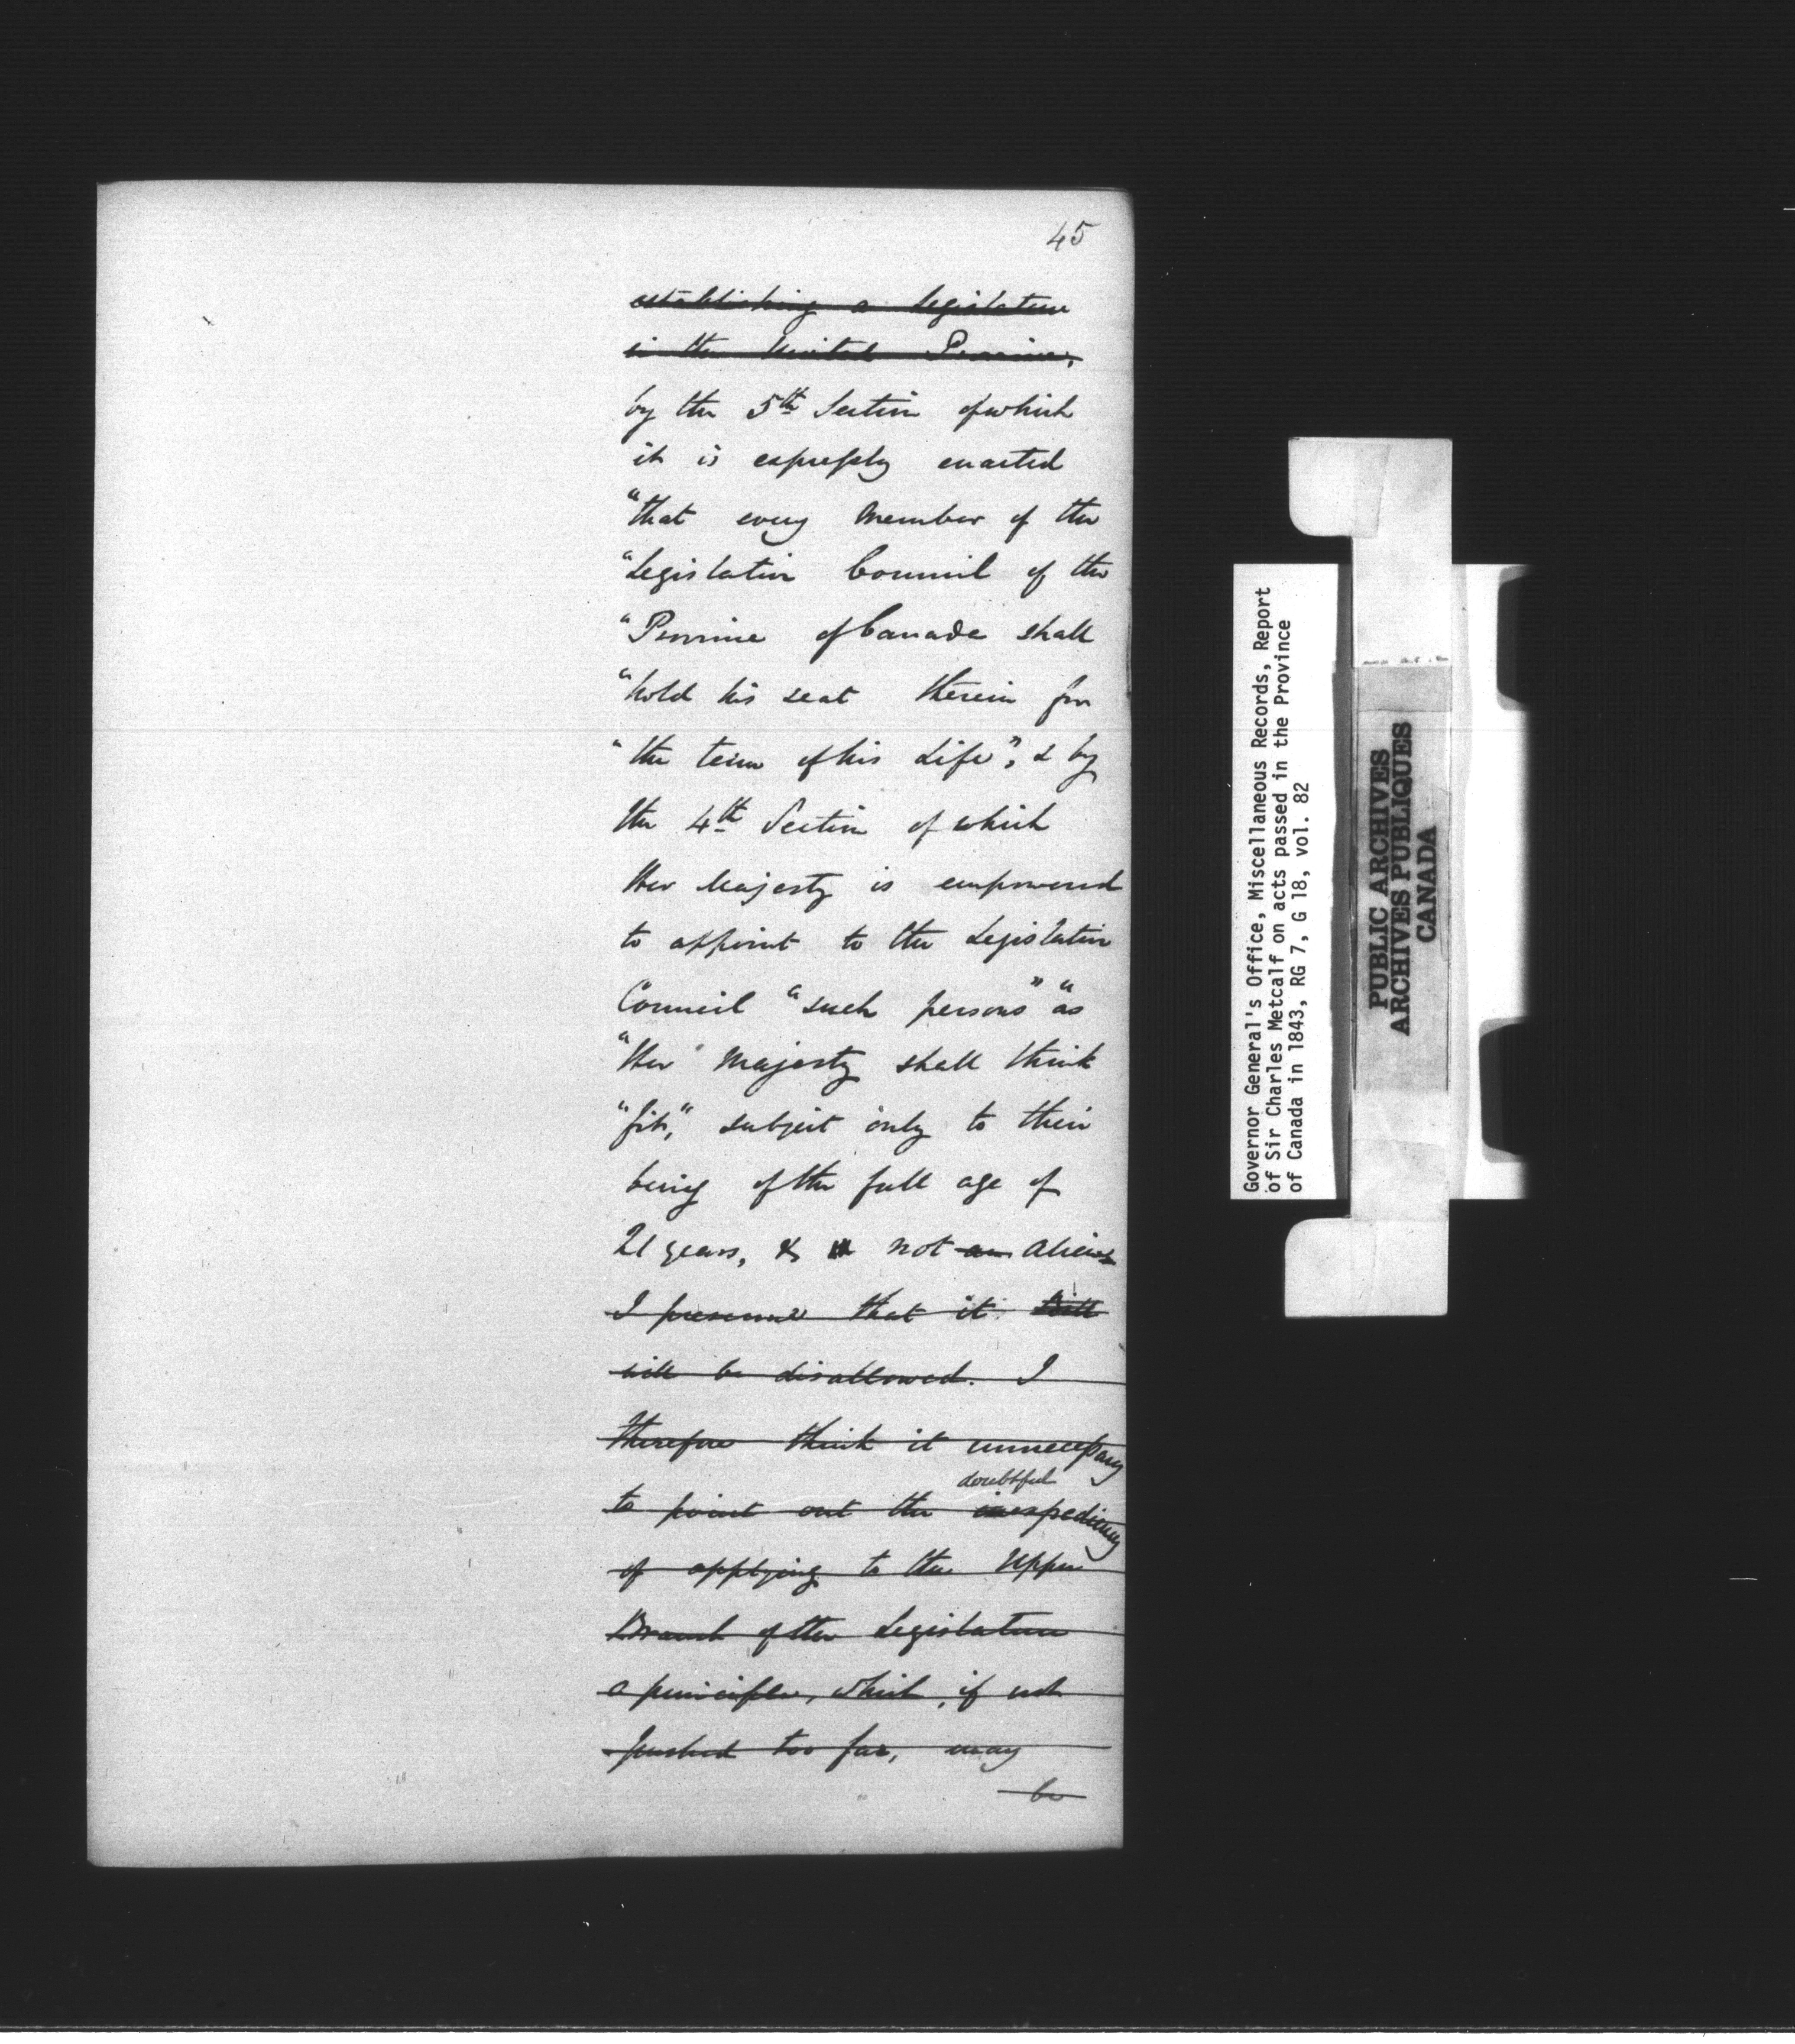 45
establishing a Legislature
in the United Province,
by the 5th Section of which
it is expressly enacted
"that every Member of the
"Legislative Council of the
"Province of Canada shall
"hold his seat therein for
"the term of his Life", & by
the 4th Section of which
Her Majesty is empowered
to appoint to the Legislative
Council "such persons" "as
"Her Majesty shall think
"fit," subject only to their
being of the full age of
21 years, & not an Aliens
I presume that it
will be disallowed. I
therefore think it unnecessary
doubtful
to point out the inexpediency
of applying to the Upper
Branch of the Legislature
a principle, which, if not
pushed too far, may
be
Governor General's Office, Miscellaneous Records, Report
of Sir Charles Metcalf on acts passed in the Province
of Canada in 1843, RG 7, G 18, vol. 82
PUBLIC ARCHIVES
ARCHIVES PUBLIQUES
CANADA